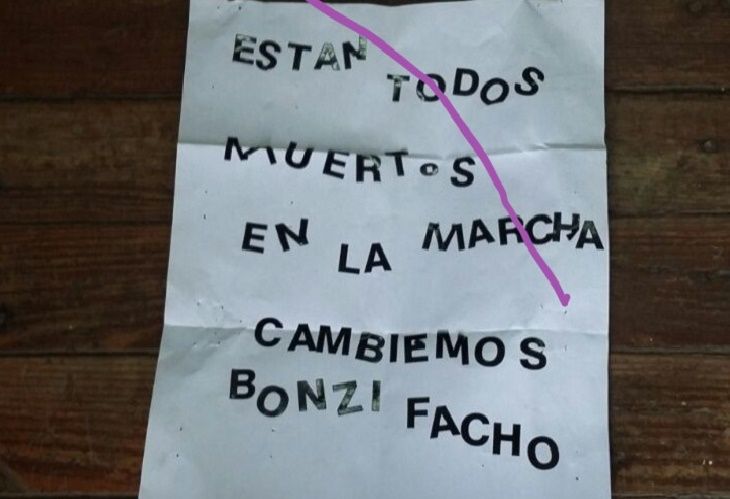 ESTAN TODOS
MUERToS
EN LA MARCHA
CAMBIEMOS
BONZI FACHO